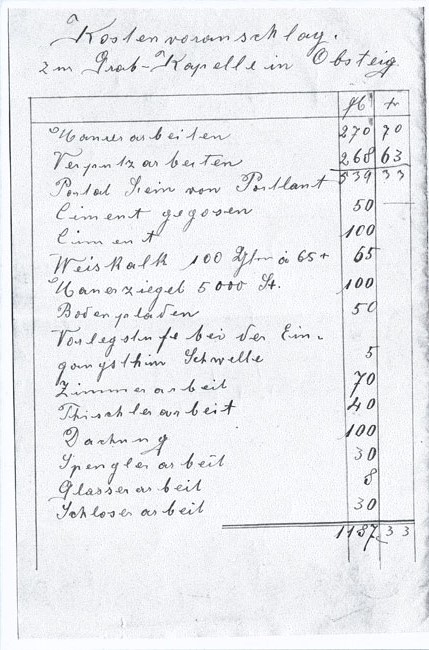 Kostenvoranschlag.
zur Grab-Kapelle in Obsteig.
fl kr
Maurerarbeiten 270 70
Verputzarbeiten 268 63
539 33
Portal Stein von Portlant
Ciment gegosen 50
Ciment 100
Weiskalk 100 à 65 65
Mauerziegel 5000 St. 100
Bodenpladen 50
Vorlegstufe bei der Ein-
gangsthür Schwelle 5
Zimmerarbeit 70
Thischlerarbeit 40
Dachung 100
Spenglerarbeit 30
Glasserarbeit 8
Schloserarbeit 30
1187 33